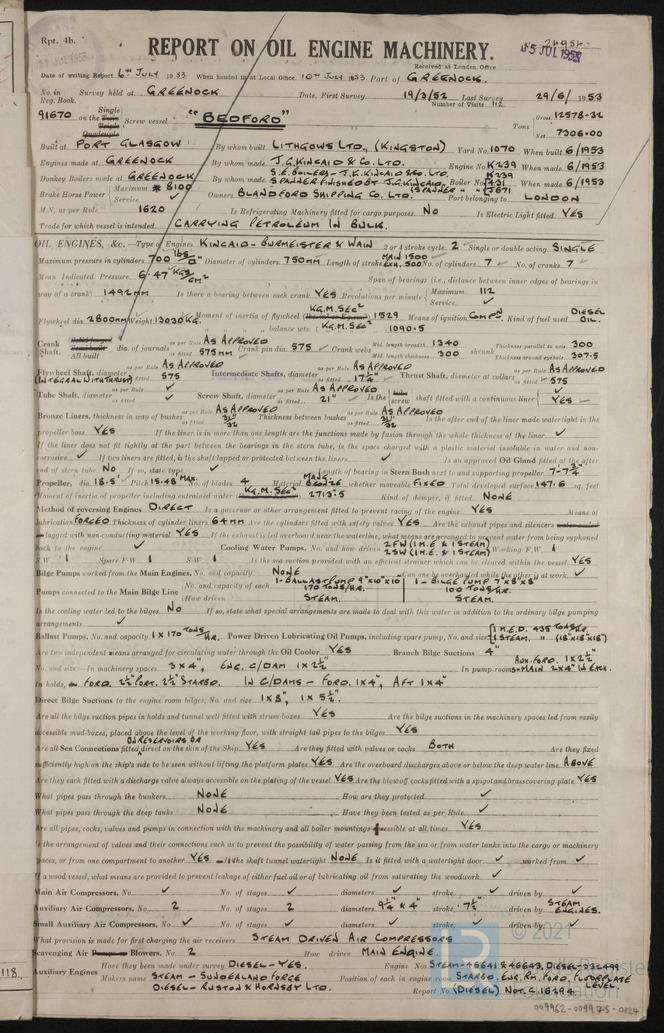 Rpt. 4b.
REPORT ON OIL ENGINE MACHINERY.
15 JUL 1953
Received at London Office
Date of writing Report 6th JULY 1953 When handed in at Local Office 10th JULY 1953 Port of GREENOCK.
No. in Reg. Book. Survey held at GREENOCK Date, First Survey 19/3/52 Last Survey 29/6/1953
Number of Visits 112
91670 on the Single Screw vessel "BEDFORD" Tons Gross 12578.32 Net 7306.00
Built at PORT GLASGOW By whom built LITHGOWS LTD., (KINGSTON) Yard No. 1070 When built 6/1953
Engines made at GREENOCK By whom made J.G. KINCAID & CO. LTD. Engine No. K239 When made 6/1953
Donkey Boilers made at GREENOCK By whom made S.E. BOILERS - J.G. KINCAID & CO. LTD. SPANNER FINISHED BY J.G. KINCAID. Boiler No. When made 6/1953
Brake Horse Power Maximum 8100 Service ✓ Owners BLANDFORD SHIPPING CO. LTD. Port belonging to LONDON
M.N. as per Rule 1620 Is Refrigerating Machinery fitted for cargo purposes. NO Is Electric Light fitted YES
Trade for which vessel is intended. CARRYING PETROLEUM IN BULK.
OIL ENGINES, &c.—Type of Engines KINCAID-BURMEISTER & WAIN 2 or 4 stroke cycle 2 Single or double acting SINGLE
Maximum pressure in cylinders 700 lbs/□" Diameter of cylinders 750MM Length of stroke MAIN 1500 EXH. 500 No. of cylinders 7 No. of cranks 7
Mean Indicated Pressure 6.47 KGS/CM² Span of bearings (i.e., distance between inner edges of bearings in
way of a crank) 1492MM Is there a bearing between each crank YES Revolutions per minute Maximum 112 Service ✓
Flywheel dia. 2800MM Weight 13030KG. Moment of inertia of flywheel KG.M.SEC² 1529 Means of ignition COMPN. Kind of fuel used DIESEL OIL.
" balance wts. KG.M.SEC² 1090.5
Crank Shaft, All built dia. of journals as per Rule AS APPROVED as fitted 575MM Crank pin dia. 575 Crank webs Mid. length breadth 1340 Mid. length thickness 300 Thickness parallel to axis 300 shrunk Thickness around eyehole 307.5
Flywheel Shaft, diameter as per Rule AS APPROVED (INTEGRAL WITH THRUST) as fitted 575 Intermediate Shafts, diameter as per Rule AS APPROVED as fitted 17¼" Thrust Shaft, diameter at collars as per Rule AS APPROVED as fitted 575
Tube Shaft, diameter as per Rule ✓ as fitted ✓ Screw Shaft, diameter as per Rule AS APPROVED as fitted 21" Is the screw shaft fitted with a continuous liner YES
Bronze Liners, thickness in way of bushes as per Rule AS APPROVED as fitted Thickness between bushes as per Rule AS APPROVED as fitted Is the after end of the liner made watertight in the
propeller boss YES If the liner is in more than one length are the junctions made by fusion through the whole thickness of the liner. ✓
If the liner does not fit tightly at the part between the bearings in the stern tube, is the space charged with a plastic material insoluble in water and non-
corrosive ✓ If two liners are fitted, is the shaft lapped or protected between the liners ✓ Is an approved Oil Gland fitted at the after
end of stern tube NO If so, state type ✓ Length of bearing in Stern Bush next to and supporting propeller 7-7¾"
Propeller, dia. 18.5' Pitch 15.48 MAX. No. of blades 4 Material MANG. BRONZE whether moveable FIXED Total developed surface 147.6 sq. feet
Moment of inertia of propeller including entrained water KG.M.SEC² 2713.5 Kind of damper, if fitted NONE
Method of reversing Engines DIRECT Is a governor or other arrangement fitted to prevent racing of the engine YES Means of
lubrication FORCED Thickness of cylinder liners 64MM Are the cylinders fitted with safety valves YES Are the exhaust pipes and silencers
lagged with non-conducting material YES If the exhaust is led overboard near the waterline, what means are arranged to prevent water from being syphoned
back to the engine ✓ Cooling Water Pumps, No. and how driven 2FW (1 M.E & 1 STEAM) 2SW (1 M.E. & 1 STEAM) Working F.W. 1
S.W 1 Spare F.W 1 S.W 1 Is the sea suction provided with an efficient strainer which can be cleared within the vessel YES
Bilge Pumps worked from the Main Engines, No. and capacity NONE Can one be overhauled while the other is at work ✓
Pumps connected to the Main Bilge Line No. and capacity of each 1-BALLAST PUMP 9"x10"x10" 170 TONS/HR. 1-BILGE PUMP 7"x8"x8" 100 TONS/HR.
How driven STEAM. STEAM.
Is the cooling water led to the bilges NO If so, state what special arrangements are made to deal with this water in addition to the ordinary bilge pumping
arrangements ✓
Ballast Pumps, No. and capacity 1 X 170 TONS/HR. Power Driven Lubricating Oil Pumps, including spare pump, No. and size 1 M.E.D. 435 TONS/HR. 1 STEAM. " (18"x18"x18")
Are two independent means arranged for circulating water through the Oil Cooler YES Branch Bilge Suctions 4"
No. and size:—In machinery spaces 3 X 4", ENG. C/DAM 1 X 2½" In pump room AUX. FORD. 1 X 2½" MAIN 2 X 4" IN EACH.
In holds, &c. FORD. 2½" PORT. 2½" STARBD. IN C/DAMS - FORD. 1 X 4", AFT 1 X 4"
Direct Bilge Suctions to the engine room bilges, No. and size 1 X 8", 1 X 5½".
Are all the bilge suction pipes in holds and tunnel well fitted with strum-boxes YES Are the bilge suctions in the machinery spaces led from easily
accessible mud-boxes, placed above the level of the working floor, with straight tail pipes to the bilges YES
Are all Sea Connections fitted direct on the skin of the ship ON RESERVOIRS OR YES Are they fitted with valves or cocks BOTH Are they fixed
sufficiently high on the ship's side to be seen without lifting the platform plates YES Are the overboard discharges above or below the deep water line ABOVE
Are they each fitted with a discharge valve always accessible on the plating of the vessel YES Are the blow off cocks fitted with a spigot and brass covering plate YES
What pipes pass through the bunkers NONE How are they protected ✓
What pipes pass through the deep tanks NONE Have they been tested as per Rule ✓
Are all pipes, cocks, valves and pumps in connection with the machinery and all boiler mountings accessible at all times YES
Is the arrangement of valves and their connections such as to prevent the possibility of water passing from the sea or from water tanks into the cargo or machinery
spaces, or from one compartment to another YES Is the shaft tunnel watertight NONE Is it fitted with a watertight door ✓ worked from ✓
If a wood vessel, what means are provided to prevent leakage of either fuel oil or of lubricating oil from saturating the woodwork ✓
Main Air Compressors, No. ✓ No. of stages ✓ diameters ✓ stroke ✓ driven by ✓
Auxiliary Air Compressors, No. 2 No. of stages 2 diameters 9¼" X 4" stroke 7½" driven by STEAM ENGINES.
Small Auxiliary Air Compressors, No. ✓ No. of stages ✓ diameters ✓ stroke ✓ driven by ✓
What provision is made for first charging the air receivers STEAM DRIVEN AIR COMPRESSORS
Scavenging Air Blowers, No. 2 How driven MAIN ENGINE.
Auxiliary Engines Have they been made under survey DIESEL - YES. Engine No. STEAM-46641 & 46643, DIESEL-332499
Makers name STEAM - SUNDERLAND FORGE DIESEL - RUSTON & HORNSBY LTD. Position of each in engine STARBD. ENG. RM. FORD. FLOORPLATE LEVEL.
Report No. (DIESEL) NOT. C 16294
118.
© 2021
009962-009975-0124